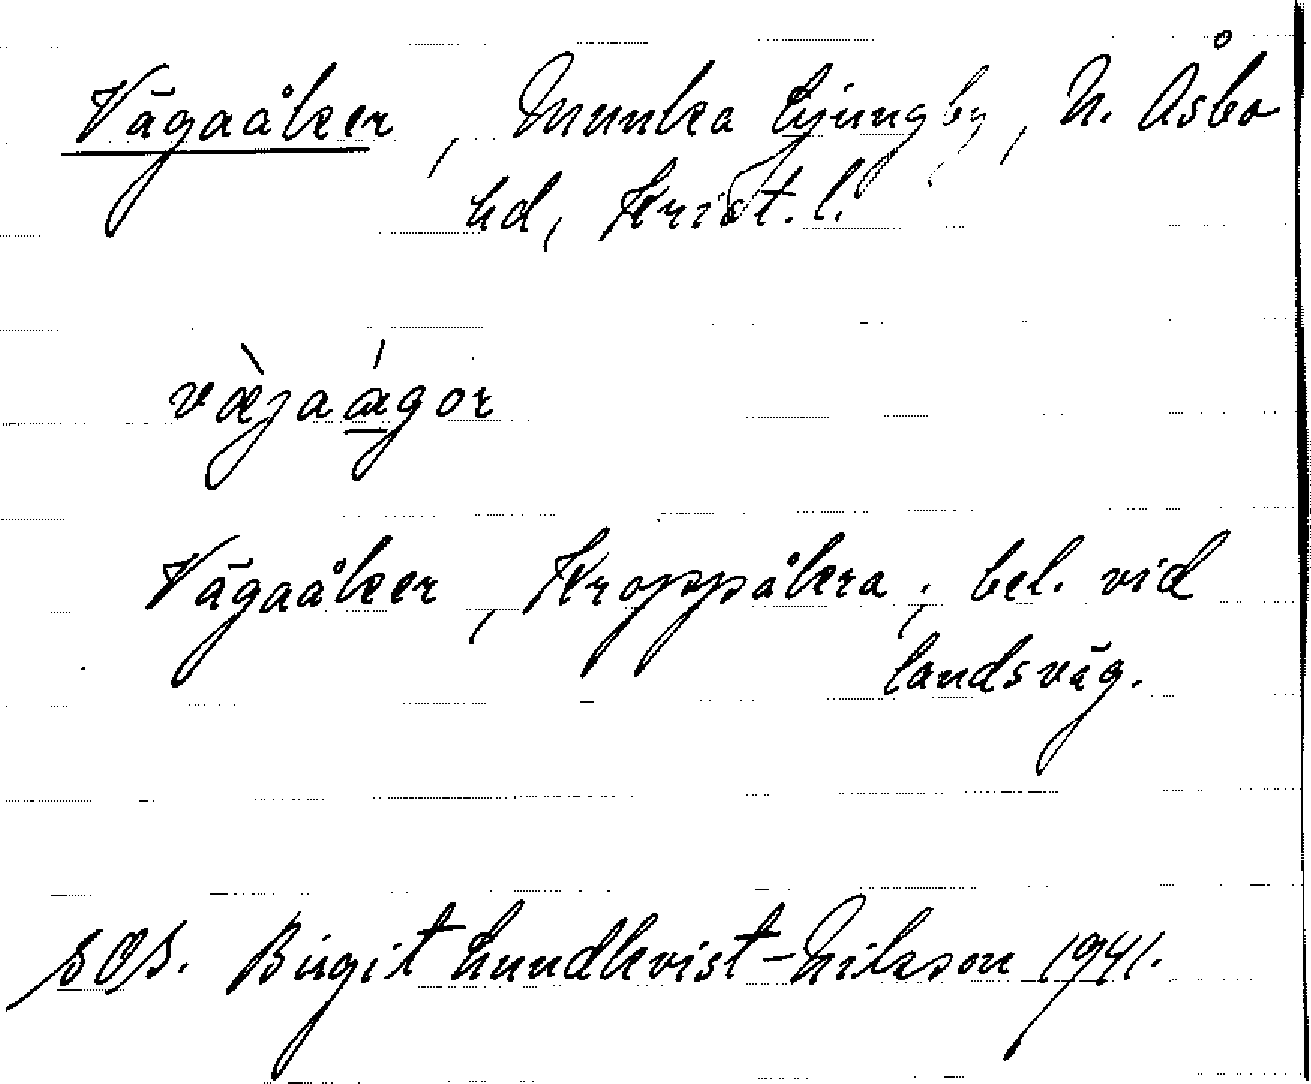 Vägaåker, Munka Ljungby, N. Åsbo
hd, Krist. l.
væ̀jaágor
Vägaåker, Kroppåkra; bel. vid
landsväg.
Birgit Lundkvist-Nilsson 1941.